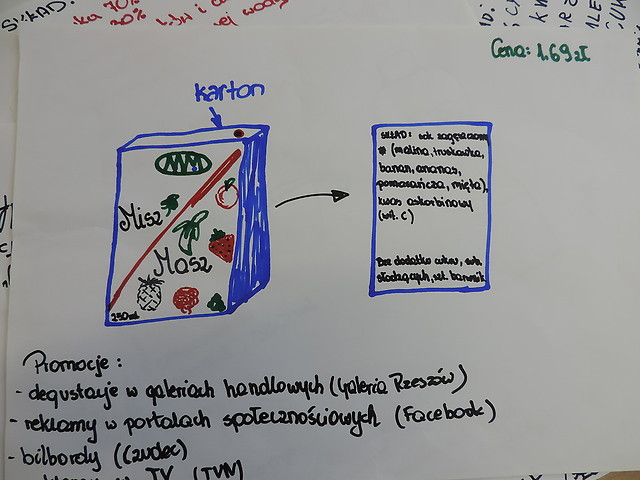 SKŁAD:
70%
Cena: 1.69 zł
karton
Misz
Masz
250ml
SKŁAD: sok zagęszczony
(malina, truskawka,
banan, ananas,
pomarańcza, mięta),
kwas askorbinowy
(wit. C)
Bez dodatku cukru, sub.
słodzących, szt. barwnik
Promocje:
- degustacje w galeriach handlowych (Galeria Rzeszów)
- reklamy w portalach społecznościowych (Facebook)
- bilbordy (Czudec)
w TV (TVM)